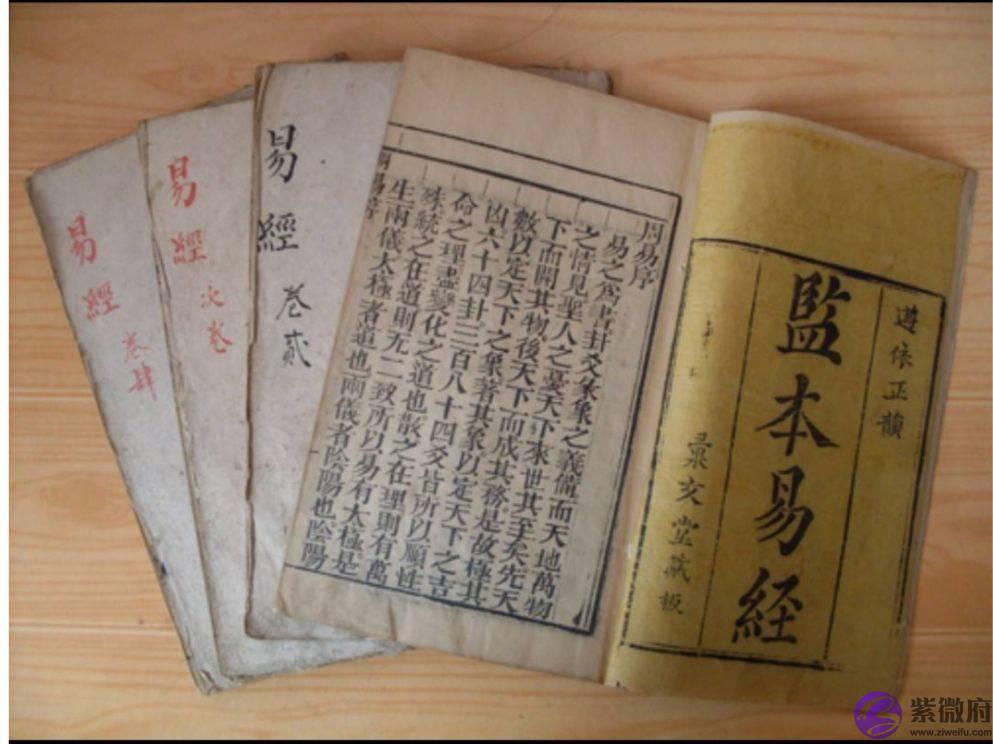 遵依正韻
監本易経
彙文堂藏板
周易序
易之爲書卦爻彖象之義備而天地萬物
之情見聖人之憂天下來世其至矣先天
下而開其物後天下而成其務是故極其
數以定天下之象著其象以定天下之吉
凶六十四卦三百八十四爻皆所以順性
命之理盡變化之道也散之在理則有萬
殊統之在道則无二致所以易有太極是
生兩儀太極者道也兩儀者陰陽也陰陽
周易序
易經 卷貳
易經 次卷
易經 卷肆
紫微府
www.ziweifu.com